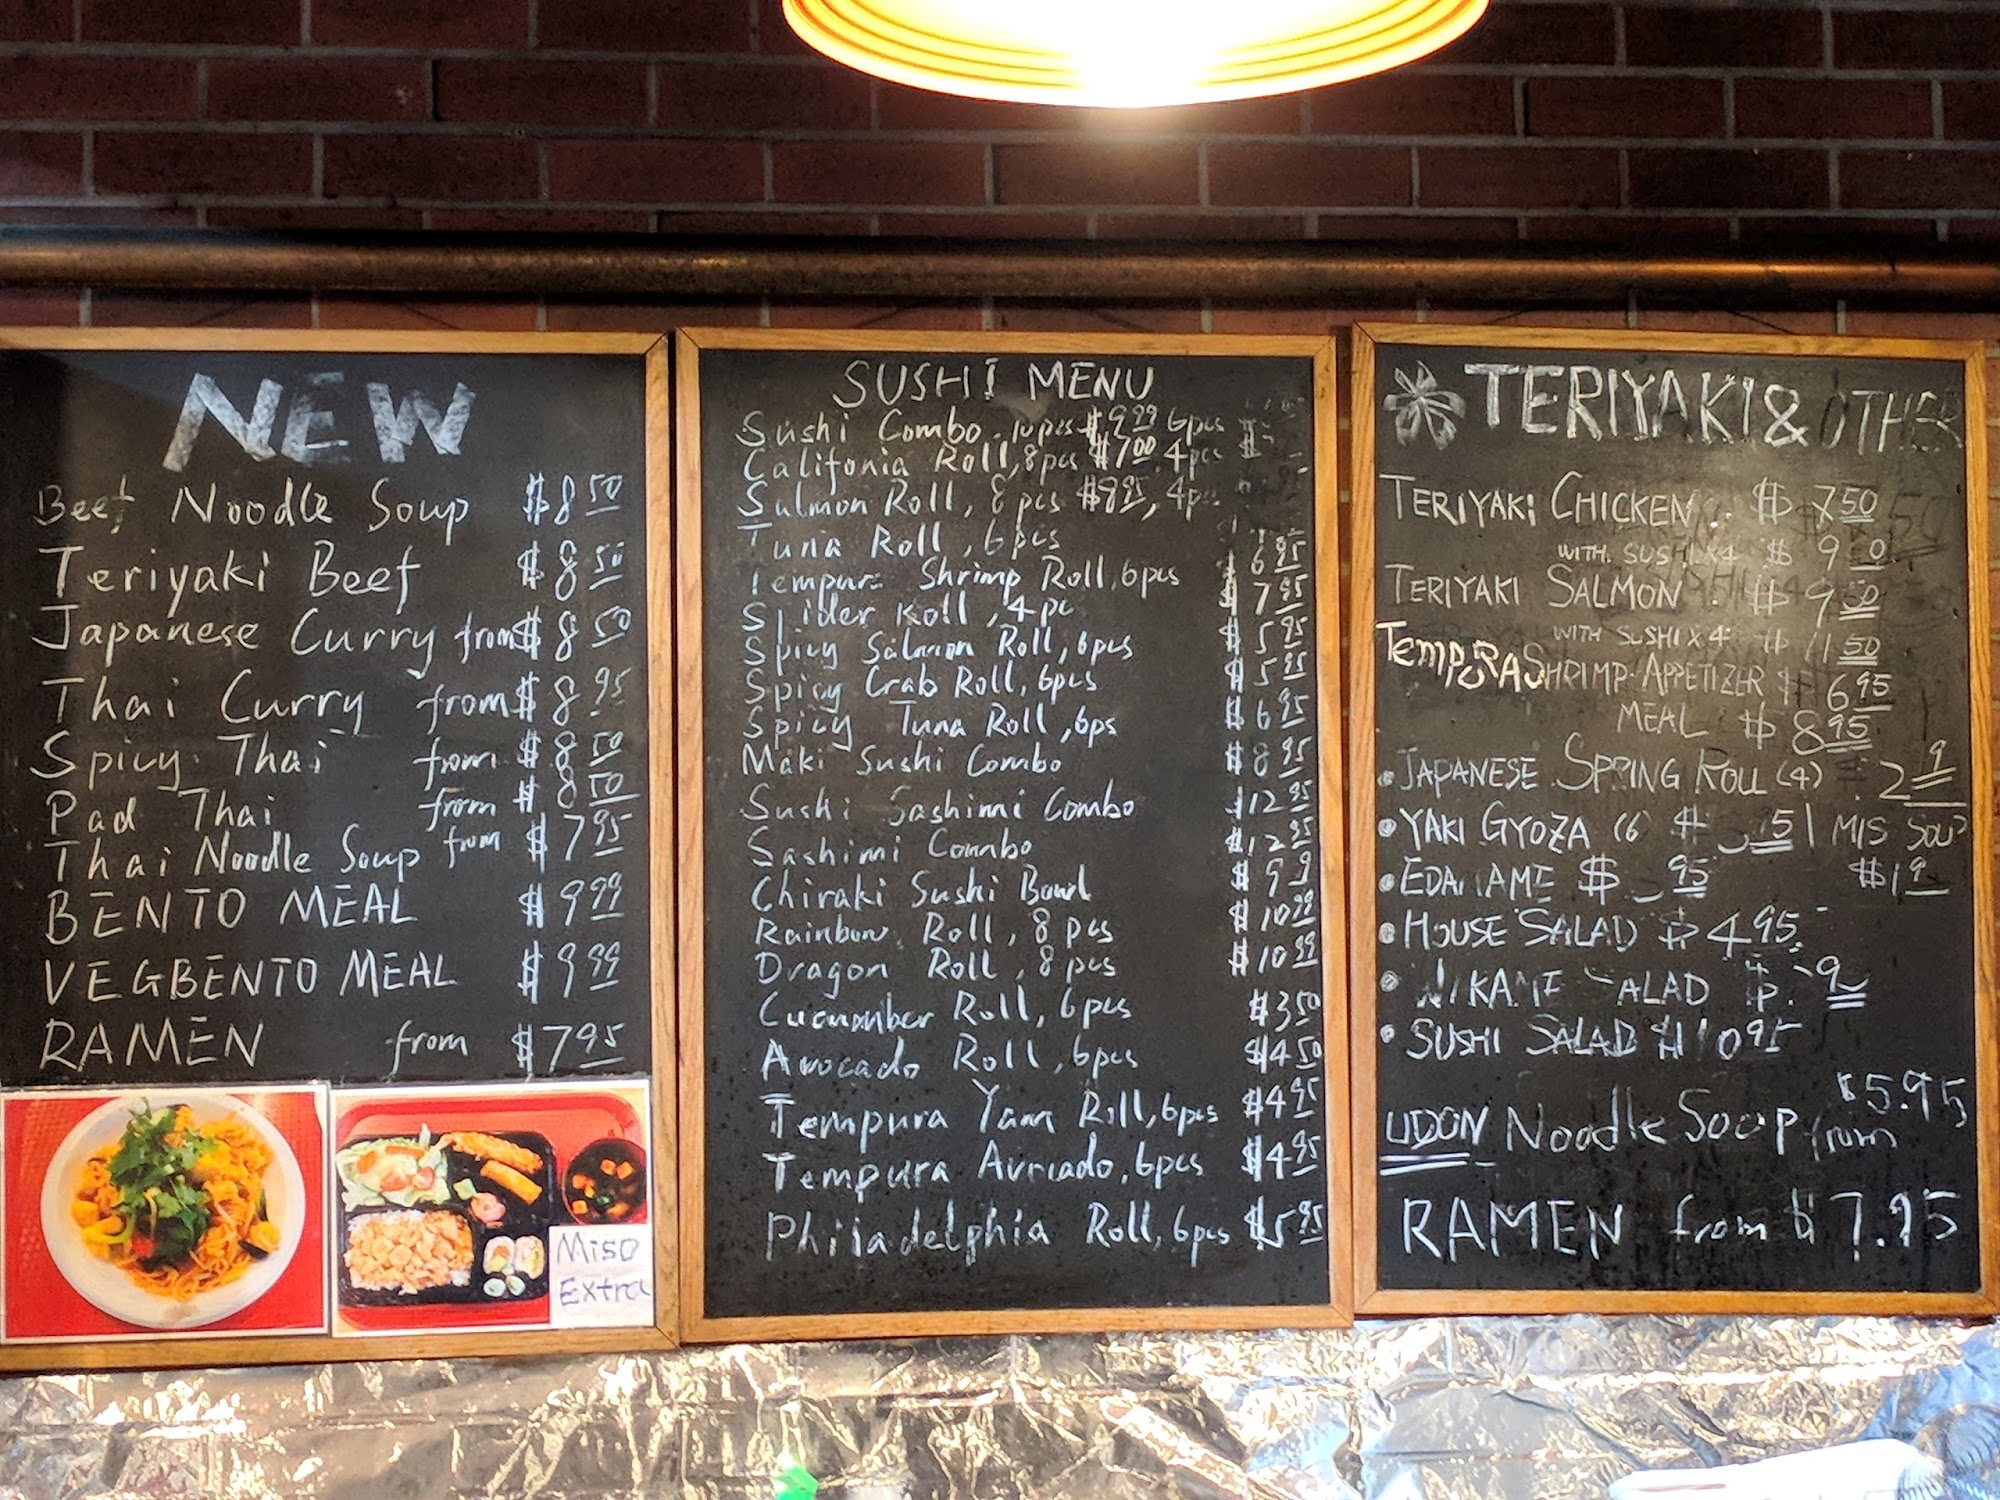 NEW
Beef Noodle Soup $8.50
Teriyaki Beef $8.50
Japanese Curry from $8.50
Thai Curry from $8.95
Spicy Thai from $8.50
Pad Thai from $8.50
Thai Noodle Soup from $7.95
BENTO MEAL $9.99
VEGBENTO MEAL $9.99
RAMEN from $7.95
Miso
Extra
SUSHI MENU
Sushi Combo, 10pcs $9.99 6pcs $
Califonia Roll, 8pcs $7.00 4pcs $
Salmon Roll, 8pcs $8.95, 4pc
Tuna Roll, 6pcs
Tempura Shrimp Roll, 6pcs 6.95
Spider Roll, 4pc $7.95
Spicy Salmon Roll, 6pcs $5.95
Spicy Crab Roll, 6pcs $5.95
Spicy Tuna Roll, 6ps $6.95
Maki Sushi Combo $8.95
Sushi Sashimi Combo $12.95
Sashimi Combo $12.95
Chiraki Sushi Bowl $9.9
Rainbow Roll, 8pcs $10.99
Dragon Roll, 8pcs $10.99
Cucumber Roll, 6pcs $3.50
Avocado Roll, 6pcs $4.50
Tempura Yam Roll, 6pcs $4.95
Tempura Avocado, 6pcs $4.95
Philadelphia Roll, 6pcs $5.95
TERIYAKI & OTHE
TERIYAKI CHICKEN $7.50
WITH SUSHI X4 $9
TERIYAKI SALMON $9.50
WITH SUSHI X4 $11.50
TempURA SHRIMP APPETIZER $6.95
MEAL $8.95
JAPANESE SPRING ROLL (4) 2
YAKI GYOZA (6) $ MIS SOUP
EDAMAME $ .95 $1.9
HOUSE SALAD $4.95
WAKAME SALAD $
SUSHI SALAD $10.95
$5.95
UDON Noodle Soup from
RAMEN from $7.95